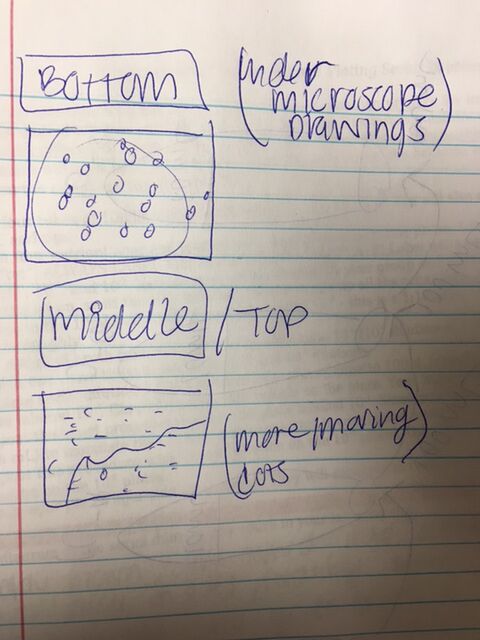 Bottom
(under
microscope
Drawings)
Middle / Top
(more/moving)
dots